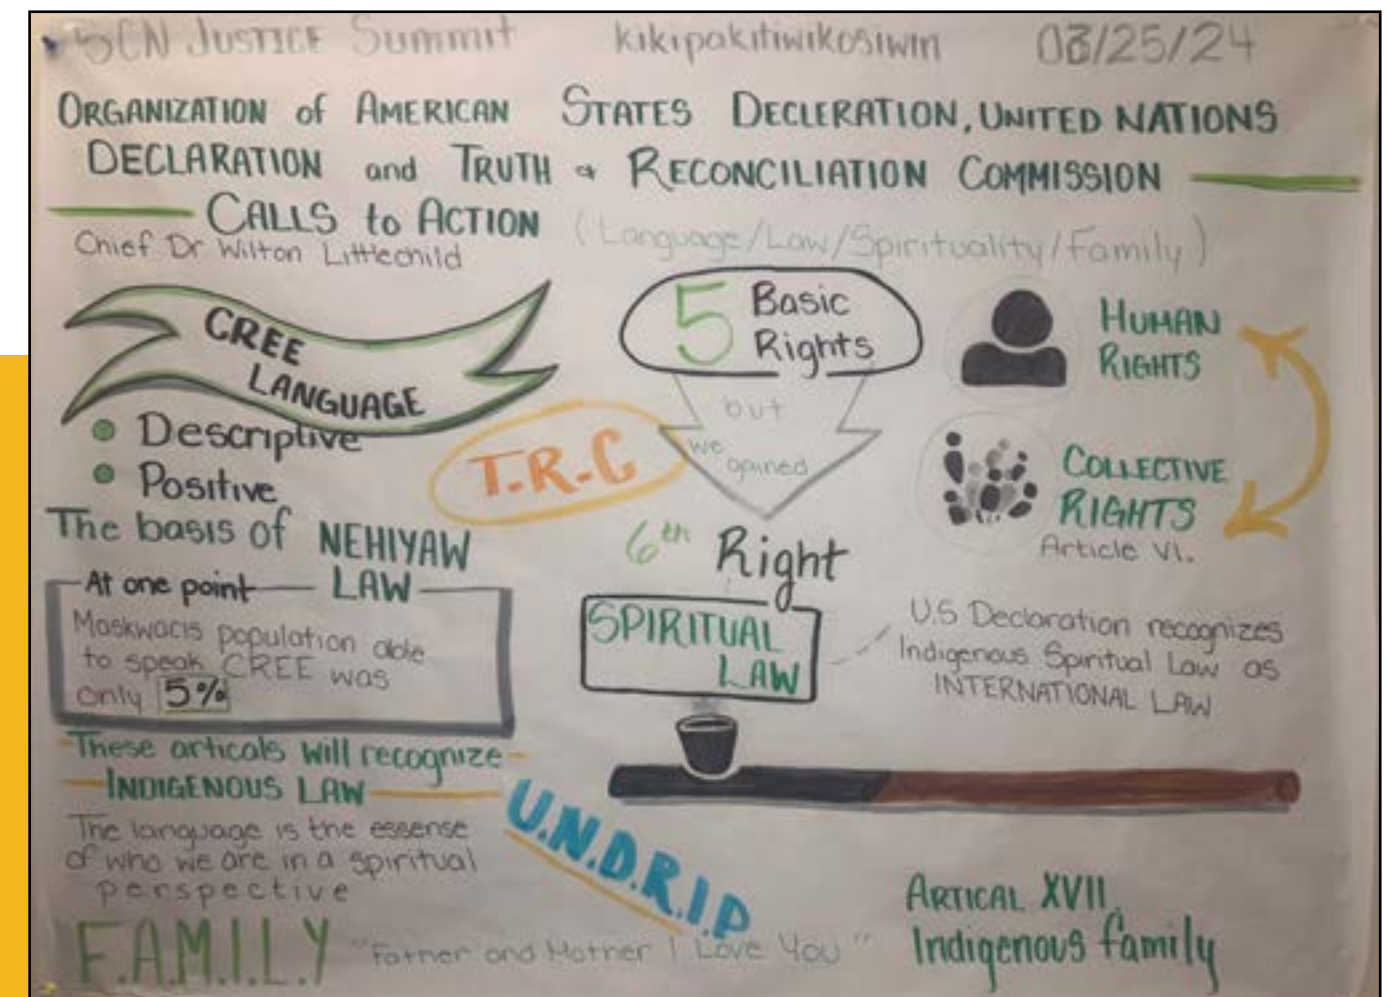 SCN JUSTICE Summit kikipakitiwikosiwin 03/25/24
ORGANIZATION of AMERICAN STATES DECLERATION, UNITED NATIONS
DECLARATION and TRUTH & RECONCILIATION COMMISSION
CALLS to ACTION (Language/Law/Spirituality/Family)
Chief Dr Wilton Littlechild
CREE
LANGUAGE
Descriptive
Positive
The basis of NEHIYAW
LAW
At one point
Maskwacis population able
to speak CREE was
only 5%
These articals will recognize
INDIGENOUS LAW
The language is the essense
of who we are in a spiritual
perspective
F.A.M.I.L.Y "Father and Mother I Love You"
T.R.C
5 Basic
Rights
but
we
gained
6th Right
SPIRITUAL
LAW
U.N.D.R.I.P
HUMAN
RIGHTS
COLLECTIVE
RIGHTS
Article VI.
U.S Declaration recognizes
Indigenous Spiritual Law as
INTERNATIONAL LAW
ARTICAL XVII
Indigenous family